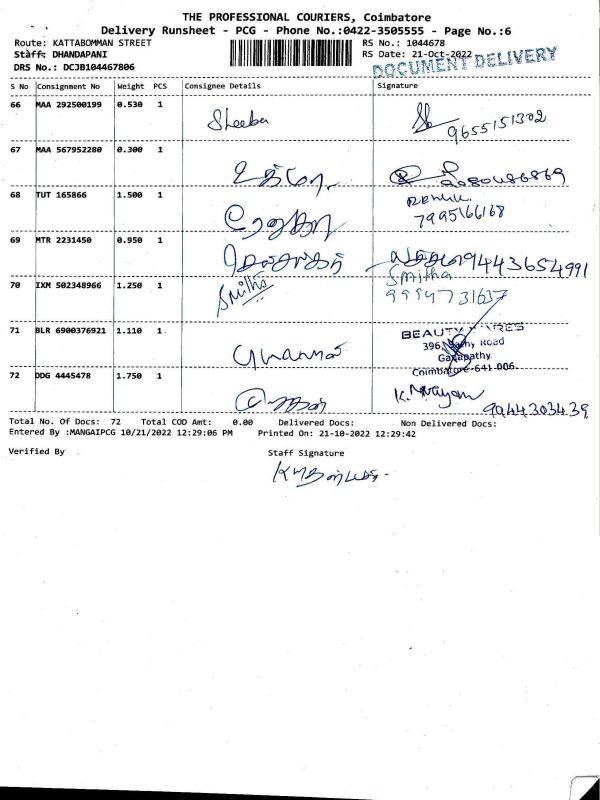 THE PROFESSIONAL COURIERS, Coimbatore
Delivery Runsheet - PCG - Phone No.:0422-3505555 - Page No.:6
Route: KATTABOMMAN STREET RS No.: 1044678
Staff: DHANDAPANI RS Date: 21-Oct-2022
DRS No.: DCJB104467806 DOCUMENT DELIVERY
S No Consignment No Weight PCS Consignee Details Signature
66 MAA 292500199 0.530 1 Sheeba 9655151302
67 MAA 567952280 0.300 1
68 TUT 165866 1.500 1 7995166168
69 MTR 2231450 0.950 1 9443654991
70 IXM 502348966 1.250 1 Smitha Smitha
71 BLR 6900376921 1.110 1
BEAUTY
396, Road
Ganapathy
Coimbatore-641 006.
72 DDG 4445478 1.750 1 K. Narayanan 9944303439
Total No. Of Docs: 72 Total COD Amt: 0.00 Delivered Docs: Non Delivered Docs:
Entered By :MANGAIPCG 10/21/2022 12:29:06 PM Printed On: 21-10-2022 12:29:42
Verified By Staff Signature